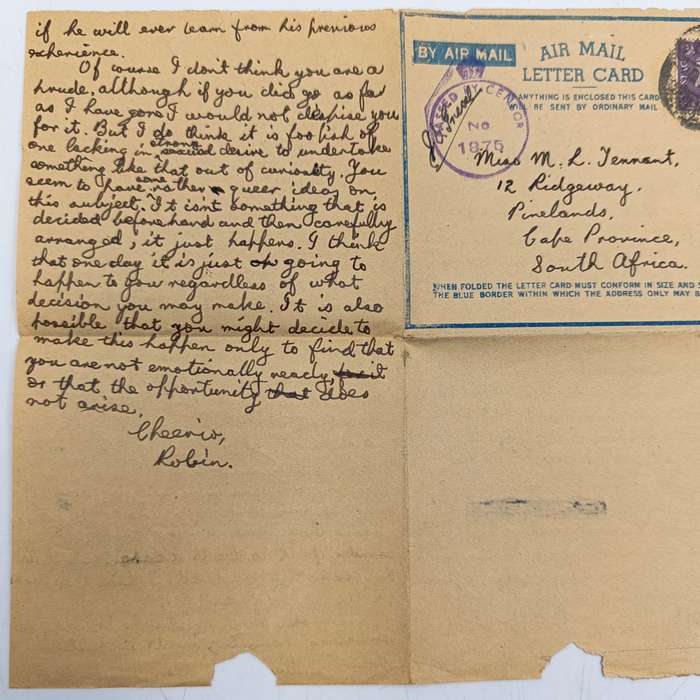 if he will ever learn from his previous
experience.
Of course I don't think you are a
prude, although if you did go as far
as I have gone I would not despise you
for it. But I do think it is foolish of
one lacking in strong sexual desire to undertake
something like that out of curiosity. You
seem to have some rather queer ideas on
this subject. It isn't something that is
decided beforehand and then carefully
arranged, it just happens. I think
that one day it is just going to
happen to you regardless of what
decision you may make. It is also
possible that you might decide to
make this happen only to find that
you are not emotionally ready,
or that the opportunity that does
not arise.
Cheerio,
Robin.
BY AIR MAIL
AIR MAIL
LETTER CARD
ANYTHING IS ENCLOSED THIS CARD
BE SENT BY ORDINARY MAIL
PASSED CENSOR
No
1875
Miss M. L. Tennant,
12 Ridgeway,
Pinelands,
Cape Province,
South Africa.
WHEN FOLDED THE LETTER CARD MUST CONFORM IN SIZE AND
THE BLUE BORDER WITHIN WHICH THE ADDRESS ONLY MAY B